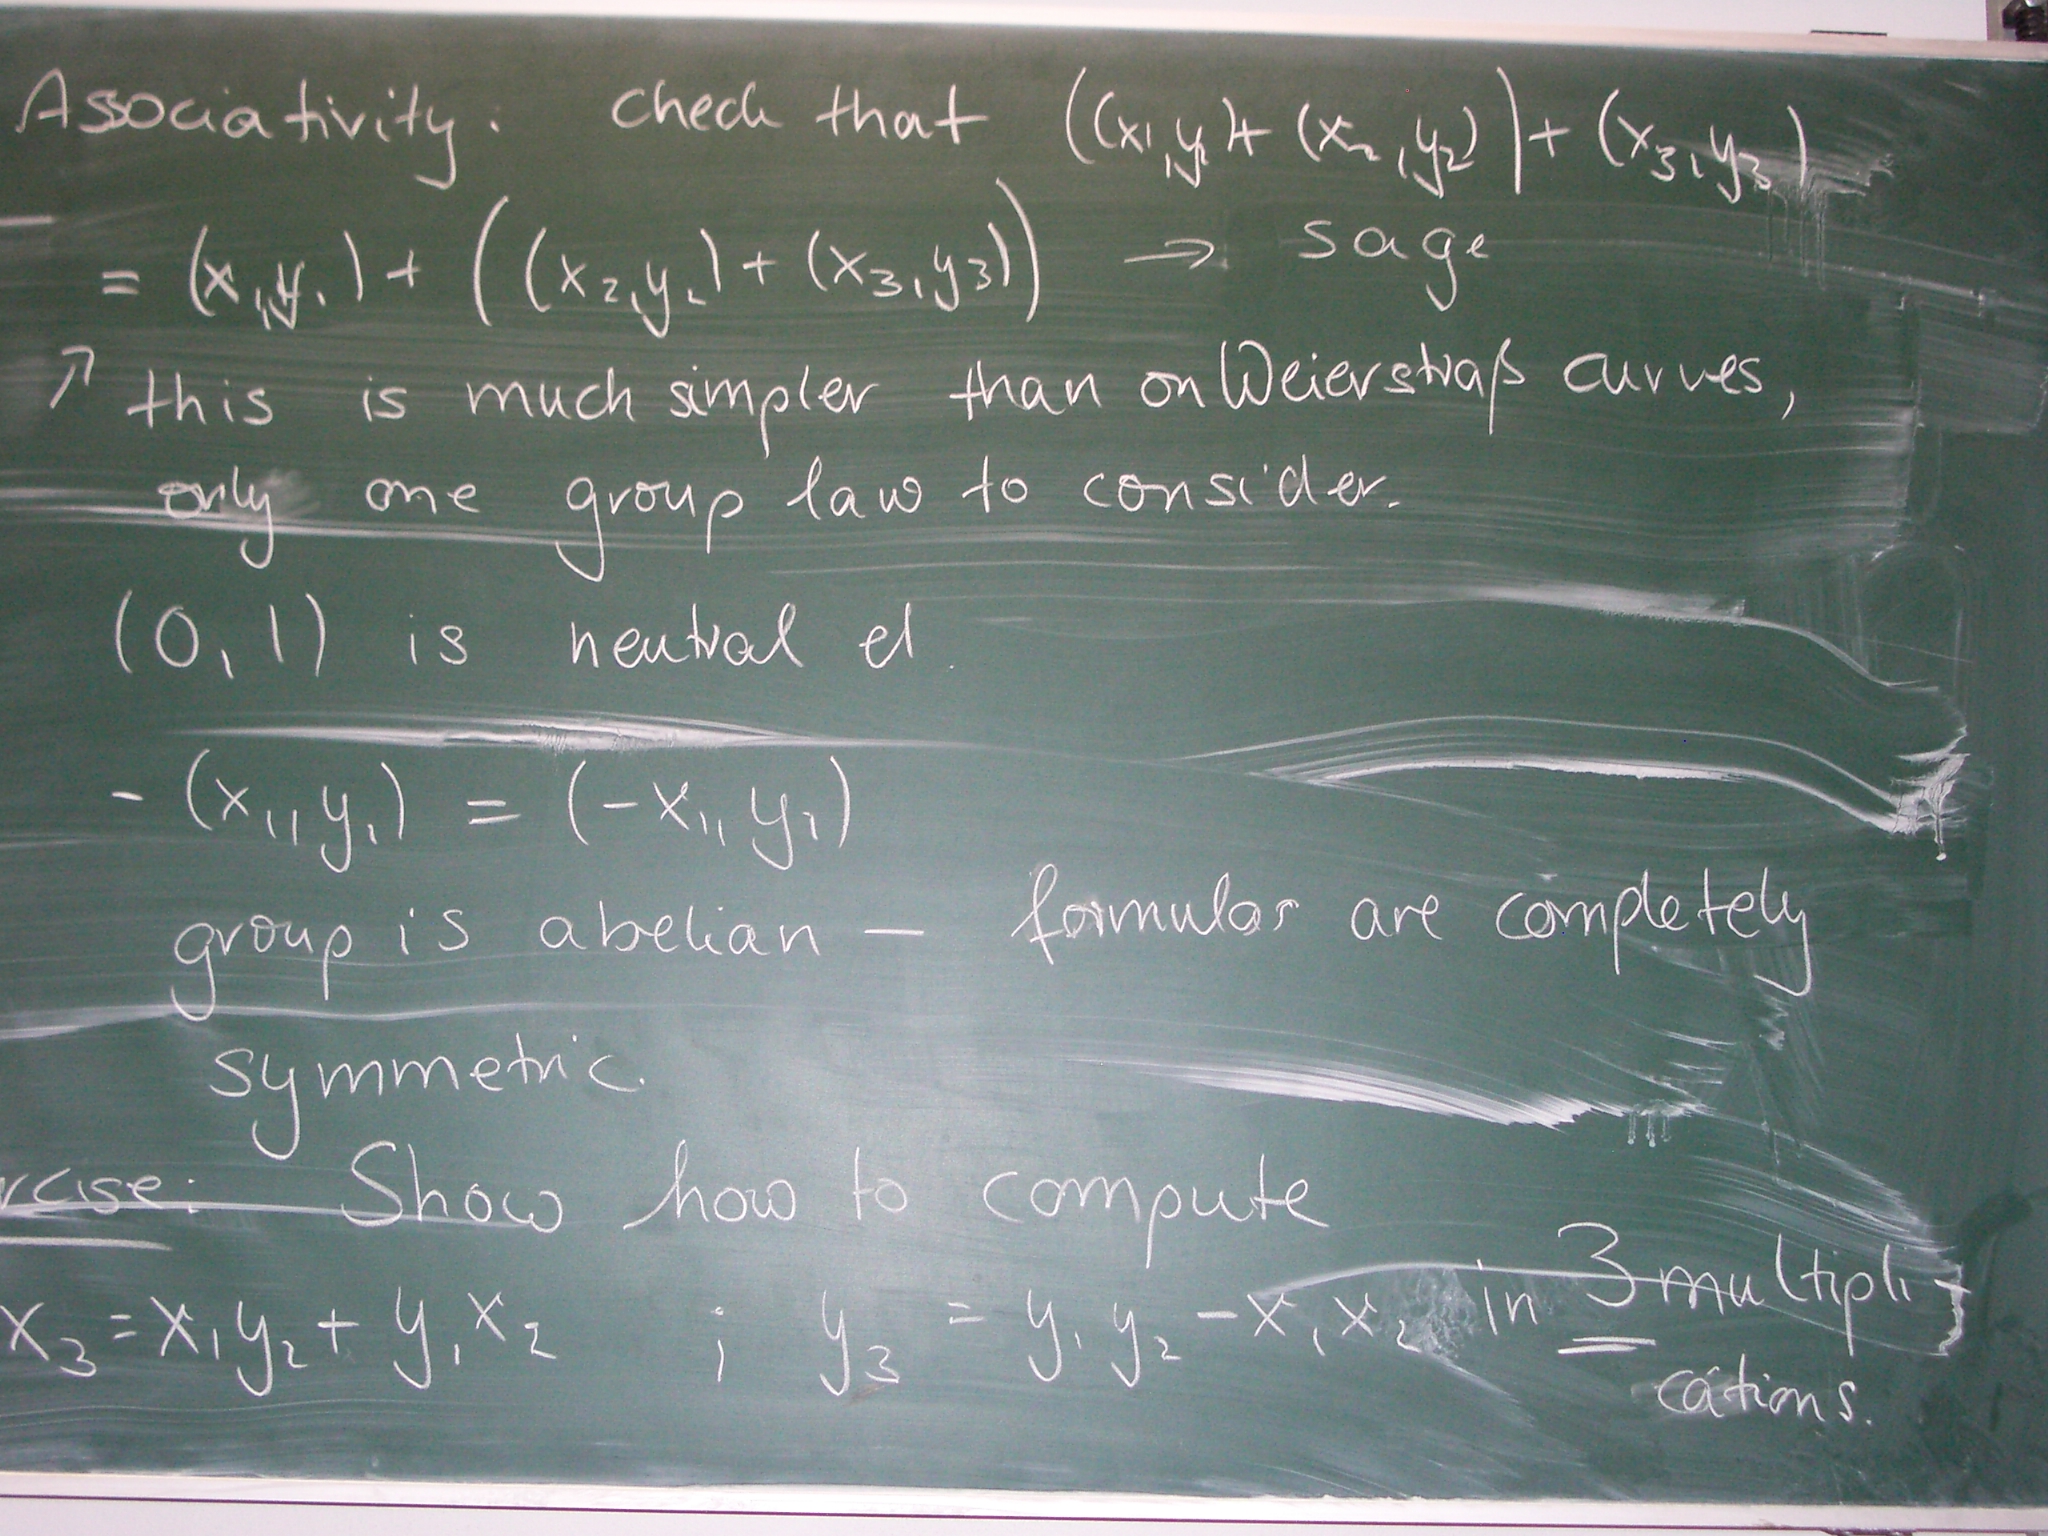 Associativity: check that ((x₁,y₁)+(x₂,y₂))+(x₃,y₃)
= (x₁,y₁)+((x₂,y₂)+(x₃,y₃)) → sage
↗ this is much simpler than on Weierstraß curves,
only one group law to consider.
(0,1) is neutral el.
-(x₁,y₁) = (-x₁,y₁)
group is abelian – formulas are completely
symmetric.
rcise: Show how to compute
x₃=x₁y₂+y₁x₂ ; y₃=y₁y₂-x₁x₂ in 3 multipli-
cations.